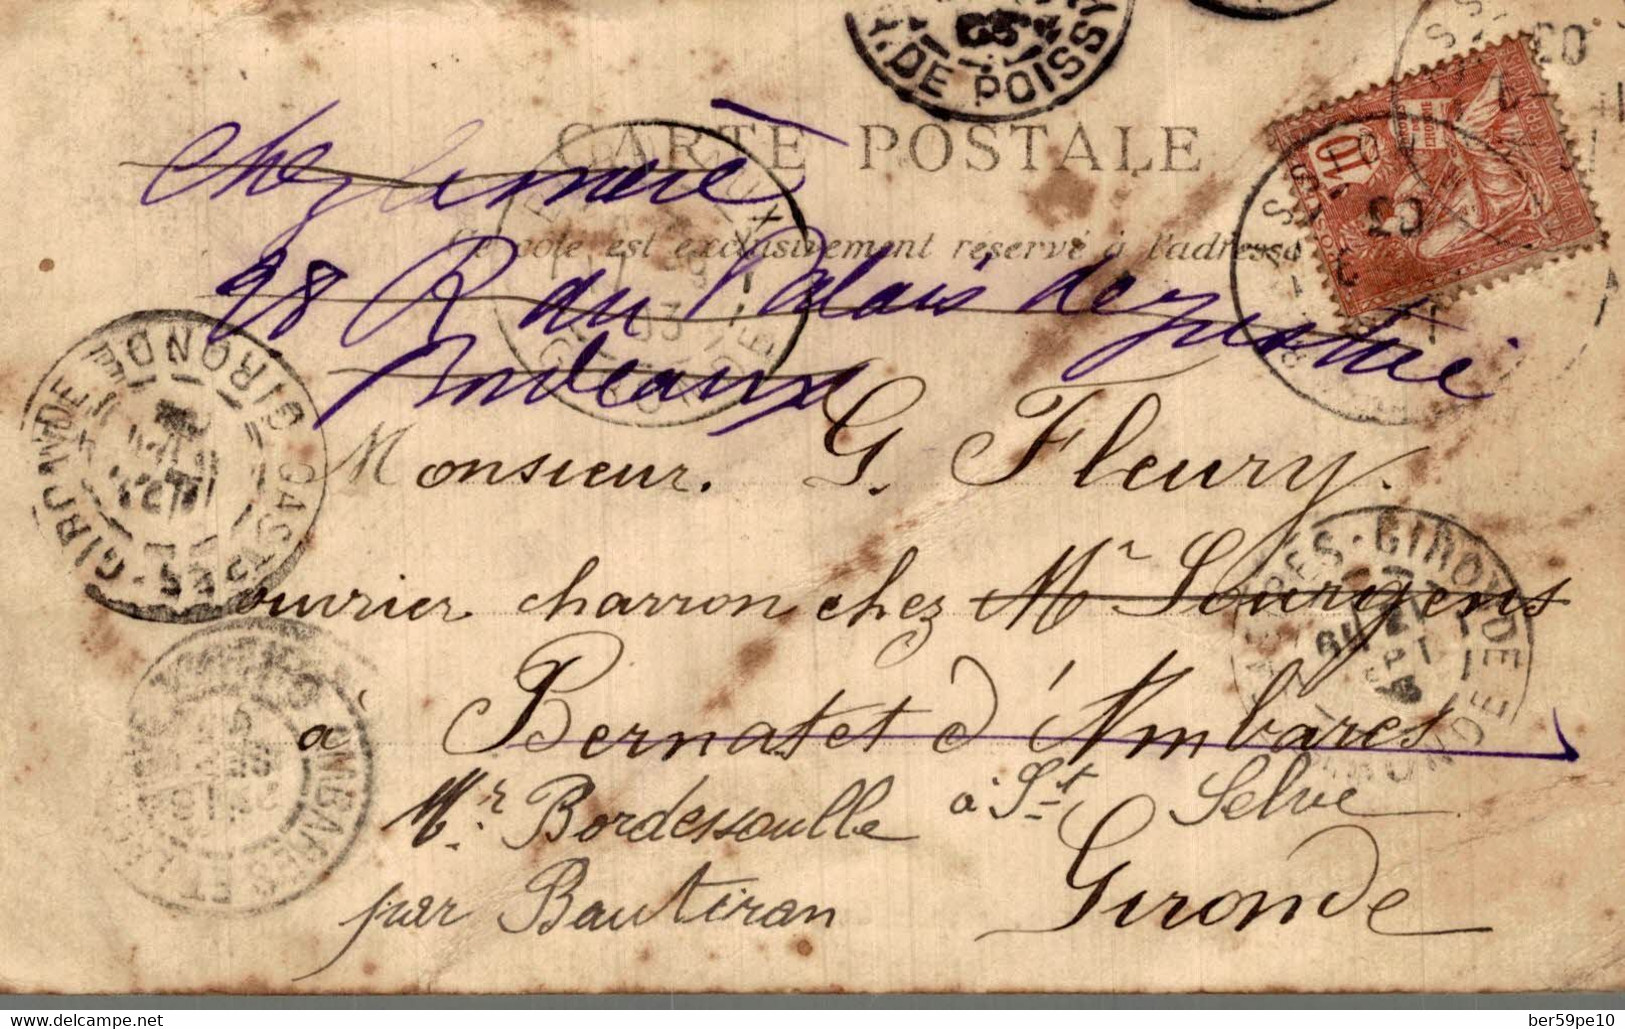 Y. DE POISSY
CARTE POSTALE
Ce côté est exclusivement réservé à l'adresse
10
03
chez
98 R du Palais de justice
Bordeaux
Monsieur. G. Fleury.
ouvrier charron chez Mr Sourgens
à Bernatet d'Ambarès
Mr. Bordessoulle à St Selve
par Bautiran Gironde
GIRONDE
CASTRES-GIRONDE
CASTRES-GIRONDE
GIRONDE
AMBARES ET
delcampe.net
ber59pe10